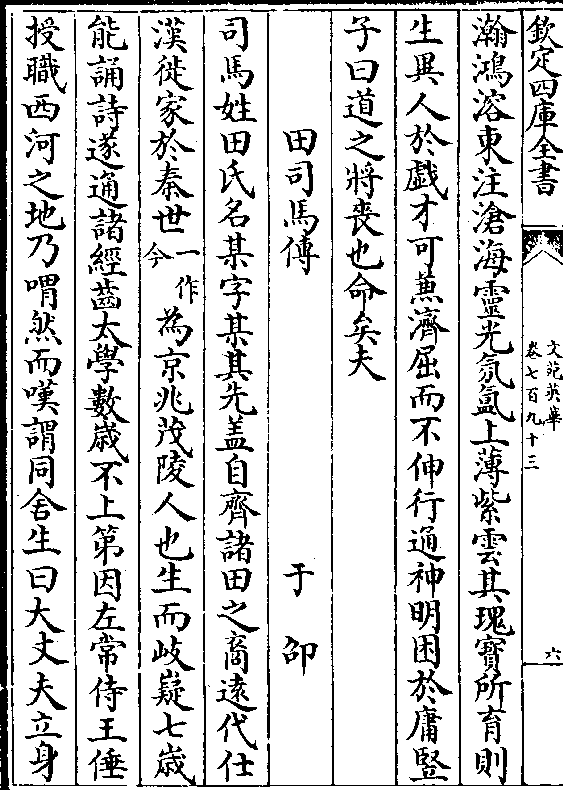 欽定四庫全書
文苑英華
卷七百九十三
六
瀚鴻溶東注滄海靈光氛氲上薄紫雲其瑰寶所育則
生異人於戲才可蒹濟屈而不伸行通神明困於庸豎
子曰道之將喪也命矣夫
田司馬傳 于卲
司馬姓田氏名某字某其先盖自齊諸田之裔遠代仕
漢徙家於秦世一作今為京兆茂陵人也生而岐嶷七歳
能誦詩遂通諸經齒太學數歳不上第因左常侍王倕
授職西河之地乃喟然而嘆謂同舍生曰大丈夫立身